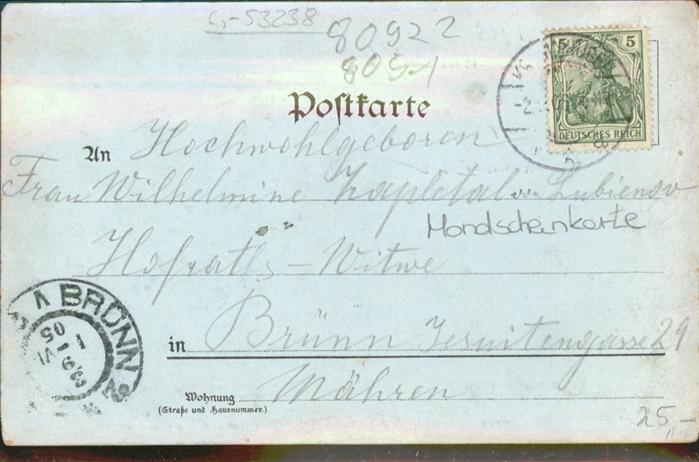 G-53238
80922
8051
5 5
DEUTSCHES REICH
Postkarte
An Hochwohlgeboren
Frau Wilhelmine Kapletal von Lubienov
Mondscheinkarte
Hofraths-Witwe
in Brünn Jesuitengasse 29
Mähren
Wohnung
(Straße und Hausnummer.)
BRÜNN
25,-